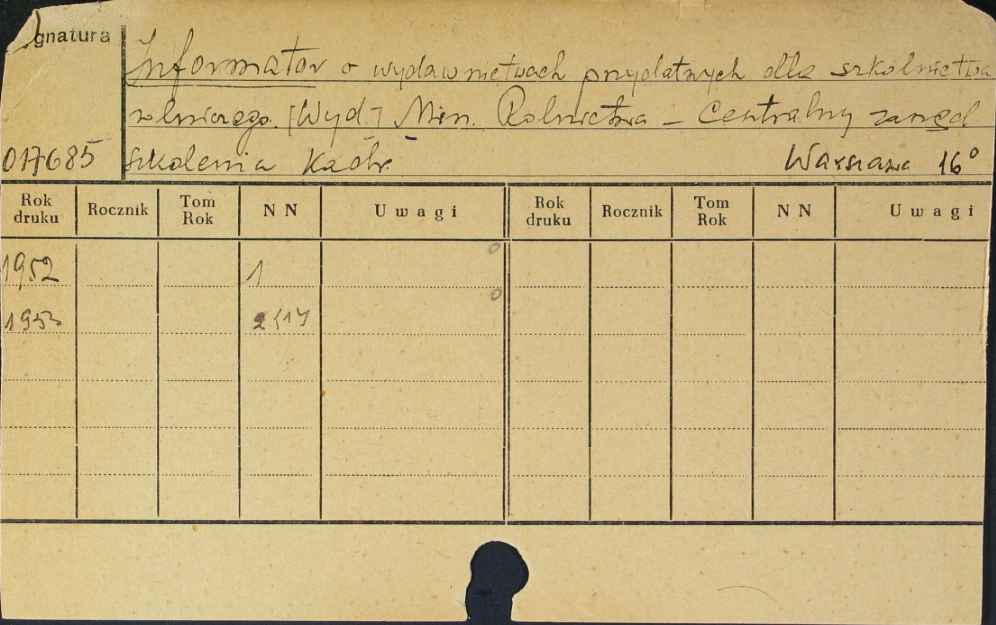 gnatura
Informator o wydawnictwach przydatnych dla szkolnictwa
rolniczego. [Wyd.] Min. Rolnictwa - Centralny zarząd
017685 szkolenia Kadr. Warszawa 16°
Rok druku Rocznik Tom Rok NN Uwagi Rok druku Rocznik Tom Rok NN Uwagi
1952 1
1953